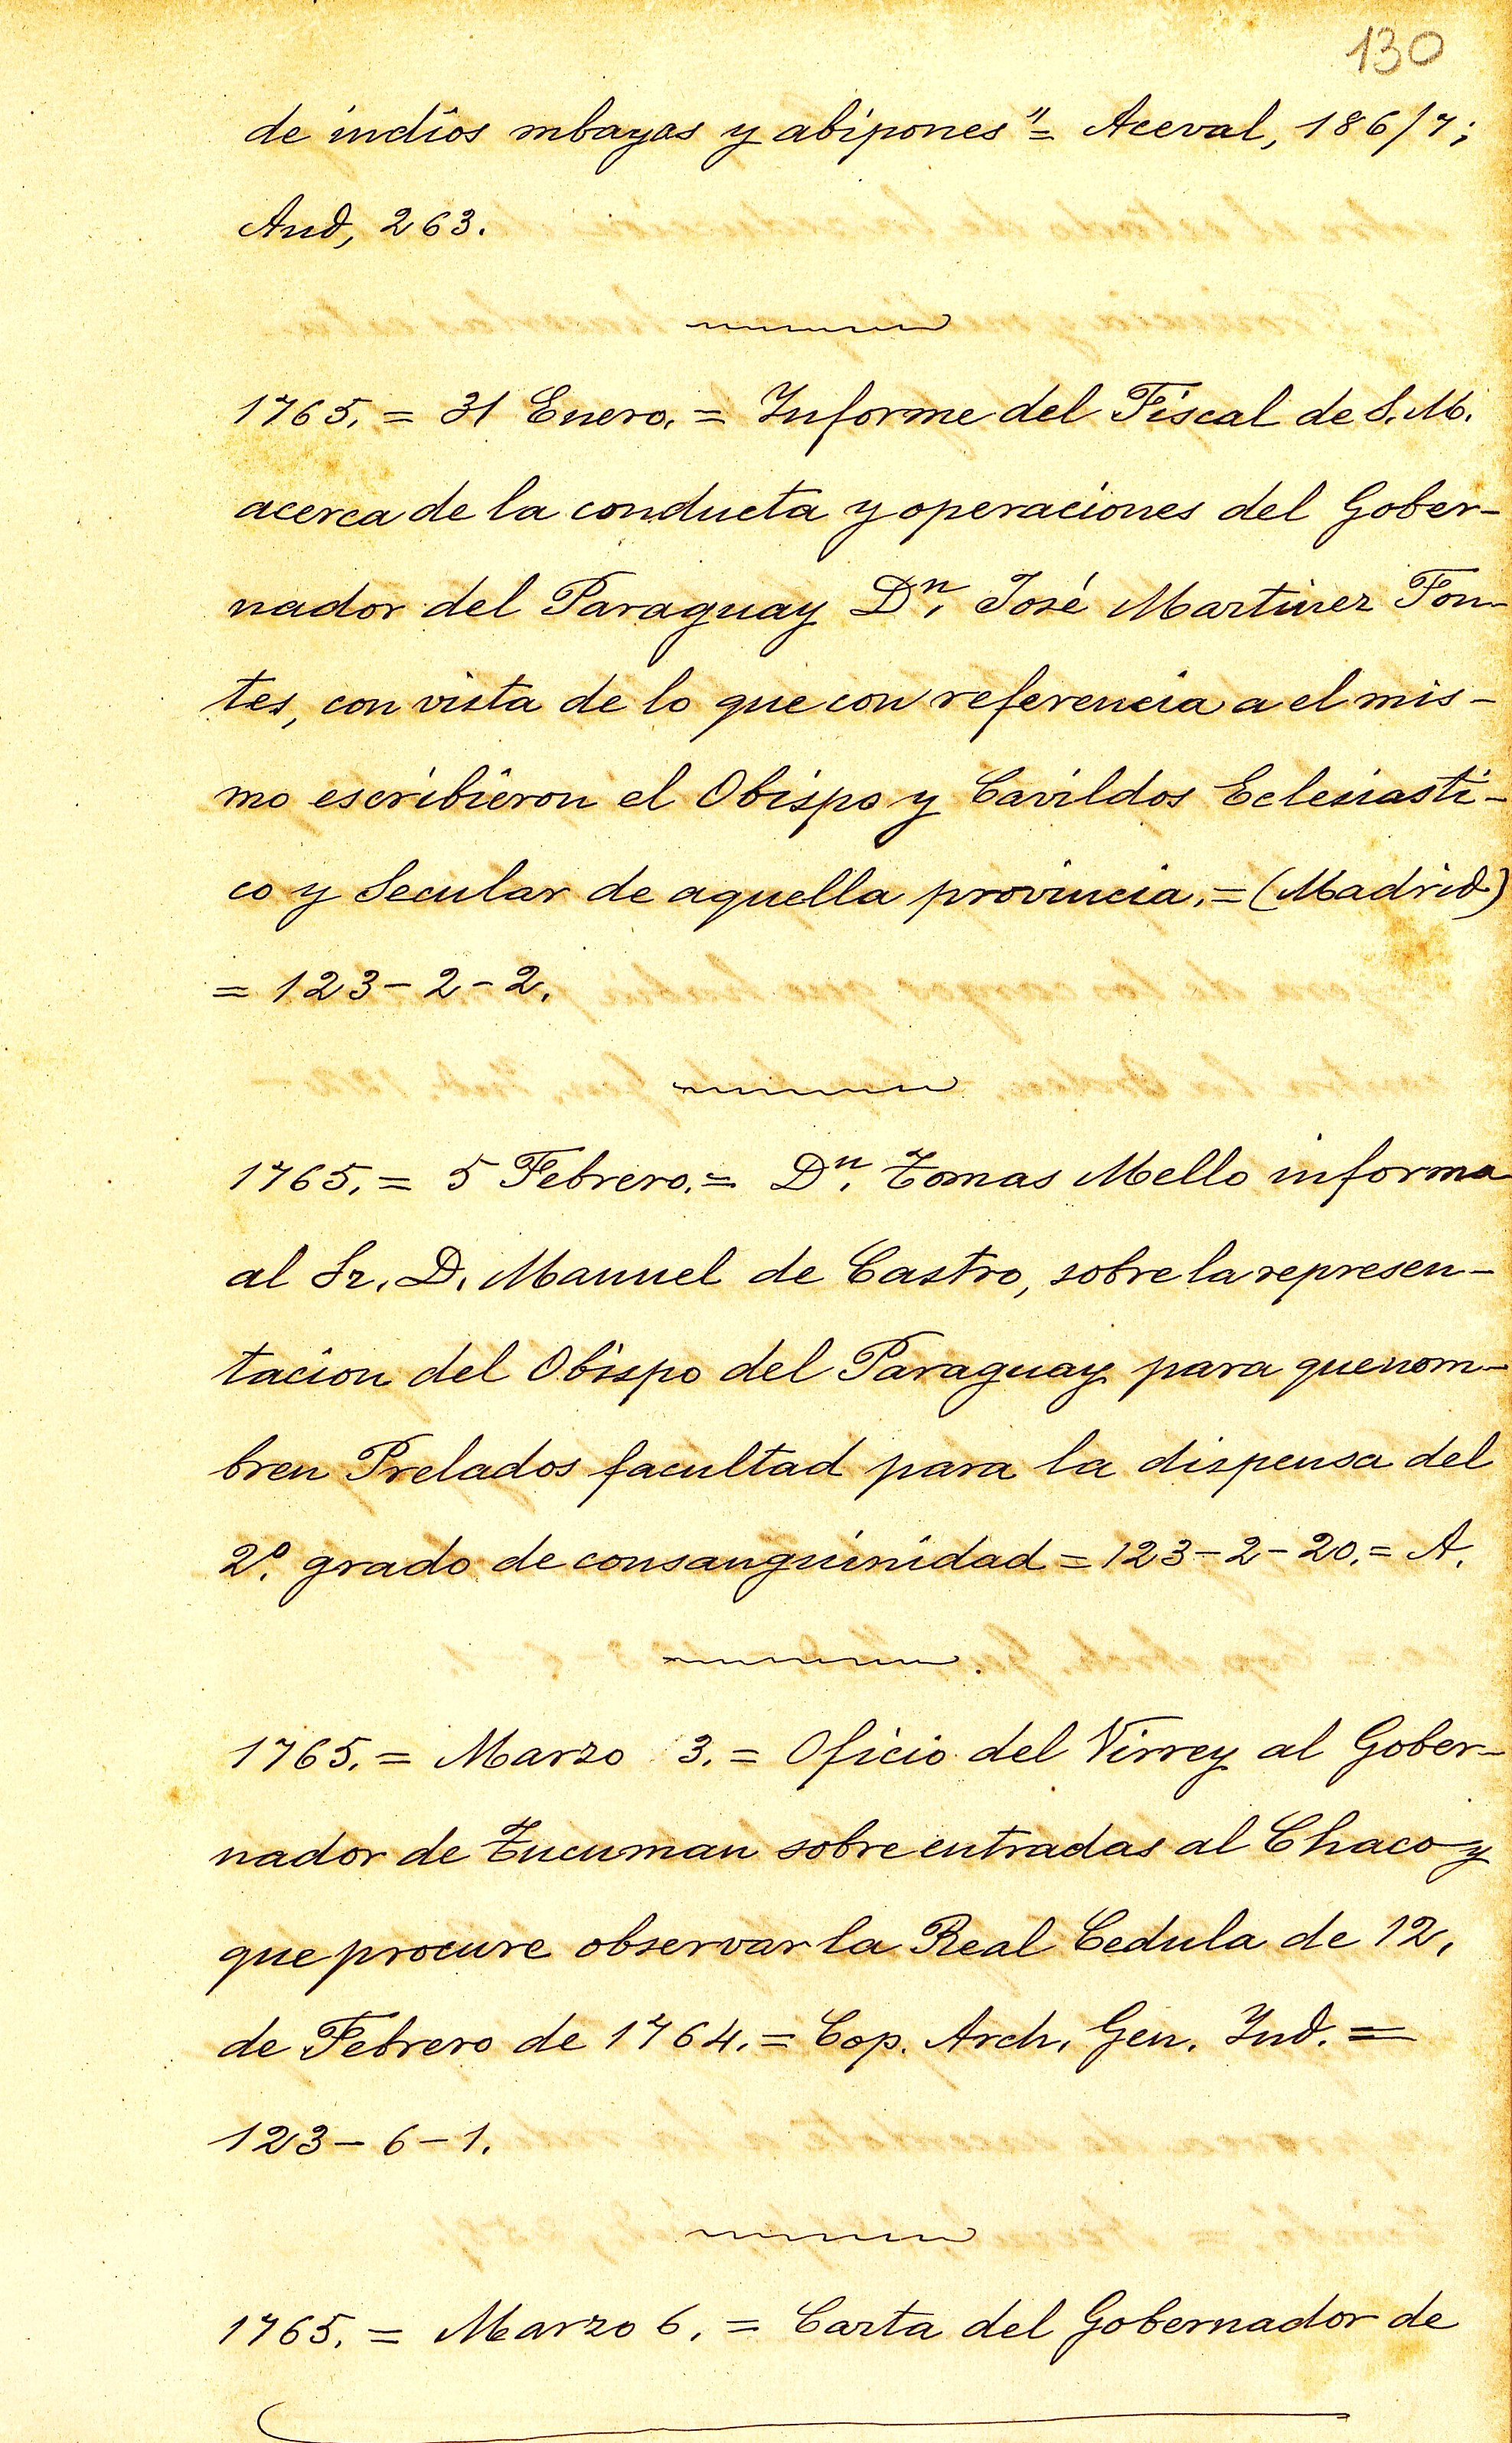 130
de indios mbayas y abipones" = Aceval, 186/7;
And, 263.
1765. = 31 Enero. = Informe del Fiscal de S. M.
acerca de la conducta y operaciones del Gober-
nador del Paraguay Dn. José Martinez Fon-
tes, con vista de lo que con referencia a el mis-
mo escribieron el Obispo y Cavildos Eclesiasti-
co y Secular de aquella provincia. = (Madrid)
= 123-2-2.
1765. = 5 Febrero. = Dn. Tomas Mello informa
al Sr. D. Manuel de Castro, sobre la represen-
tacion del Obispo del Paraguay para que nom-
bren Prelados facultad para la dispensa del
2º. grado de consanguinidad = 123-2-20. = A.
1765. = Marzo 3. = Oficio del Virrey al Gober-
nador de Tucuman sobre entradas al Chaco y
que procure observar la Real Cedula de 12,
de Febrero de 1764. = Cop. Arch. Gen. Ind. =
123-6-1.
1765. = Marzo 6. = Carta del Gobernador de